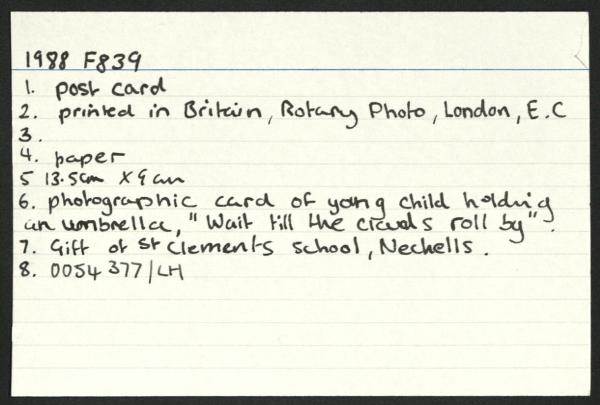 1988 F839
1. post card
2. printed in Britain, Rotary Photo, London, E.C
3.
4. paper
5 13.5cm x 9cm
6. photographic card of young child holding
an umbrella, "Wait till the clouds roll by".
7. Gift of St Clements school, Nechells.
8. 0054377/LH